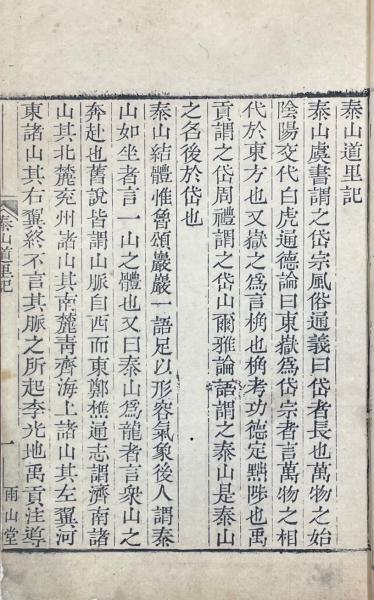 泰山道里記
泰山虞書謂之岱宗風俗通義曰岱者長也萬物之始
陰陽交代白虎通德論曰東嶽為岱宗者言萬物之相
代於東方也又嶽之為言桷也桷考功德定黜陟也禹
貢謂之岱周禮謂之岱山爾雅論語謂之泰山是泰山
之名後於岱也
泰山結體惟魯頌巖巖一語足以形容氣象後人謂泰
山如坐者言一山之體也又曰泰山為龍者言衆山之
奔赴也舊說皆謂山脈自西而東鄭樵通志謂濟南諸
山其北麓兖州諸山其南麓靑齊海上諸山其左翼河
東諸山其右翼終不言其脈之所起李光地禹貢注導
泰山道里記
一
雨山堂